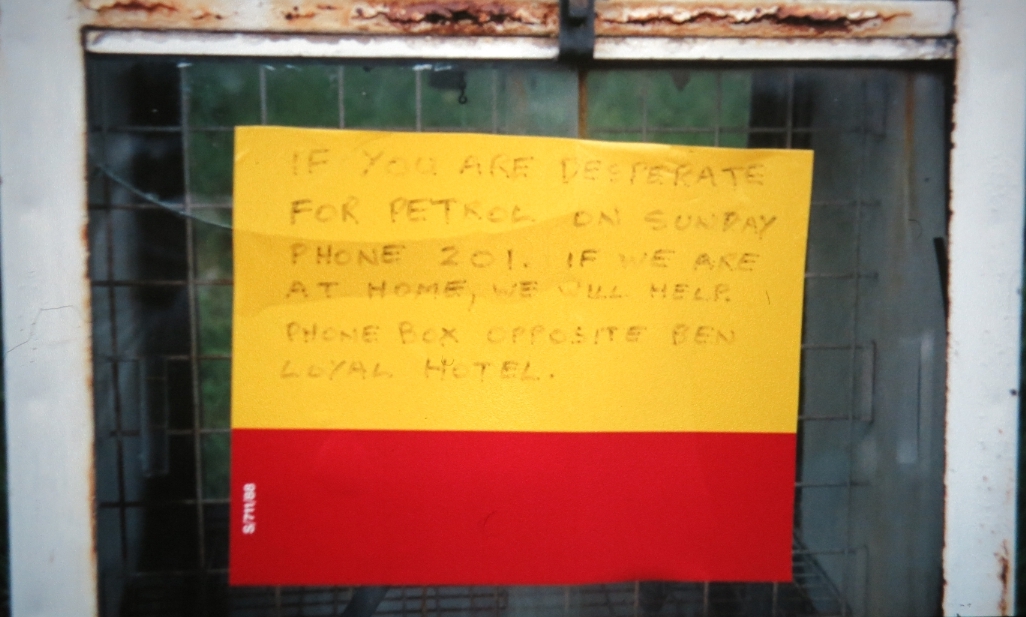 IF YOU ARE DESPERATE
FOR PETROL ON SUNDAY
PHONE 201. IF WE ARE
AT HOME, WE WILL HELP.
PHONE BOX OPPOSITE BEN
LOYAL HOTEL.
S/711/88